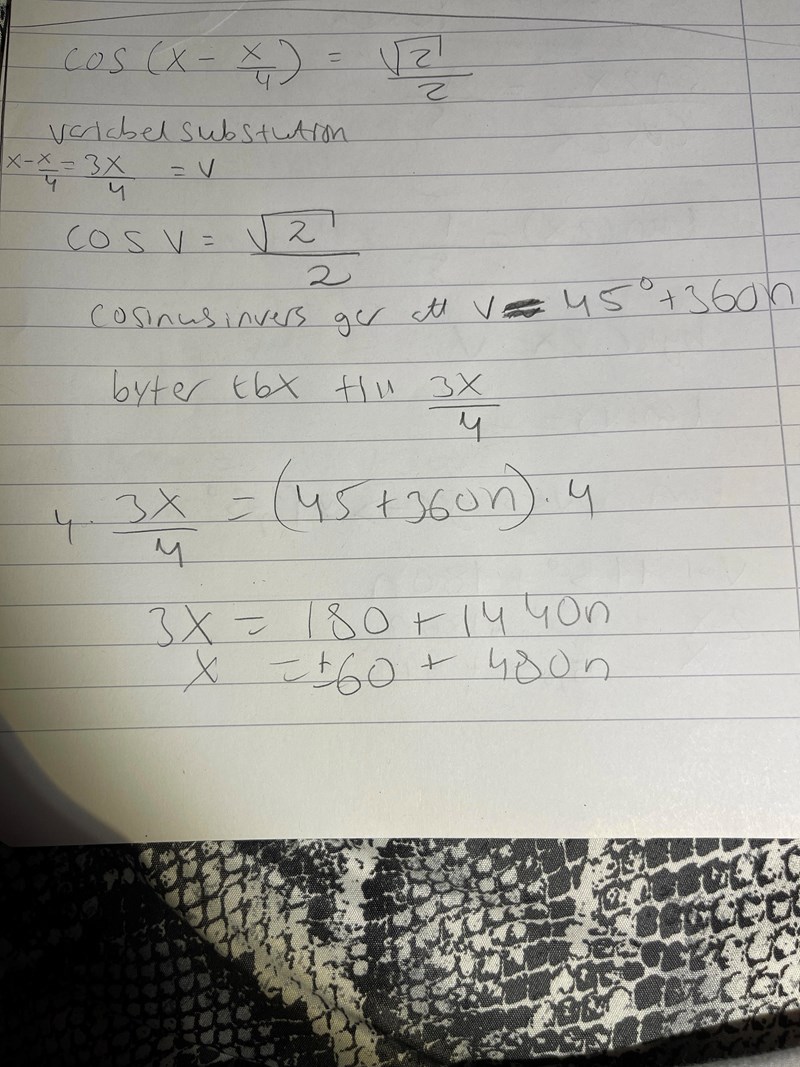 cos (x - x/4) = √2/2
variabelsubstution
x-x/4 = 3x/4 = v
cos v = √2/2
cosinusinvers ger att v = 45° + 360n
byter tbx till 3x/4
4 · 3x/4 = (45 + 360n) · 4
3x = 180 + 1440n
x = ±60 + 480n